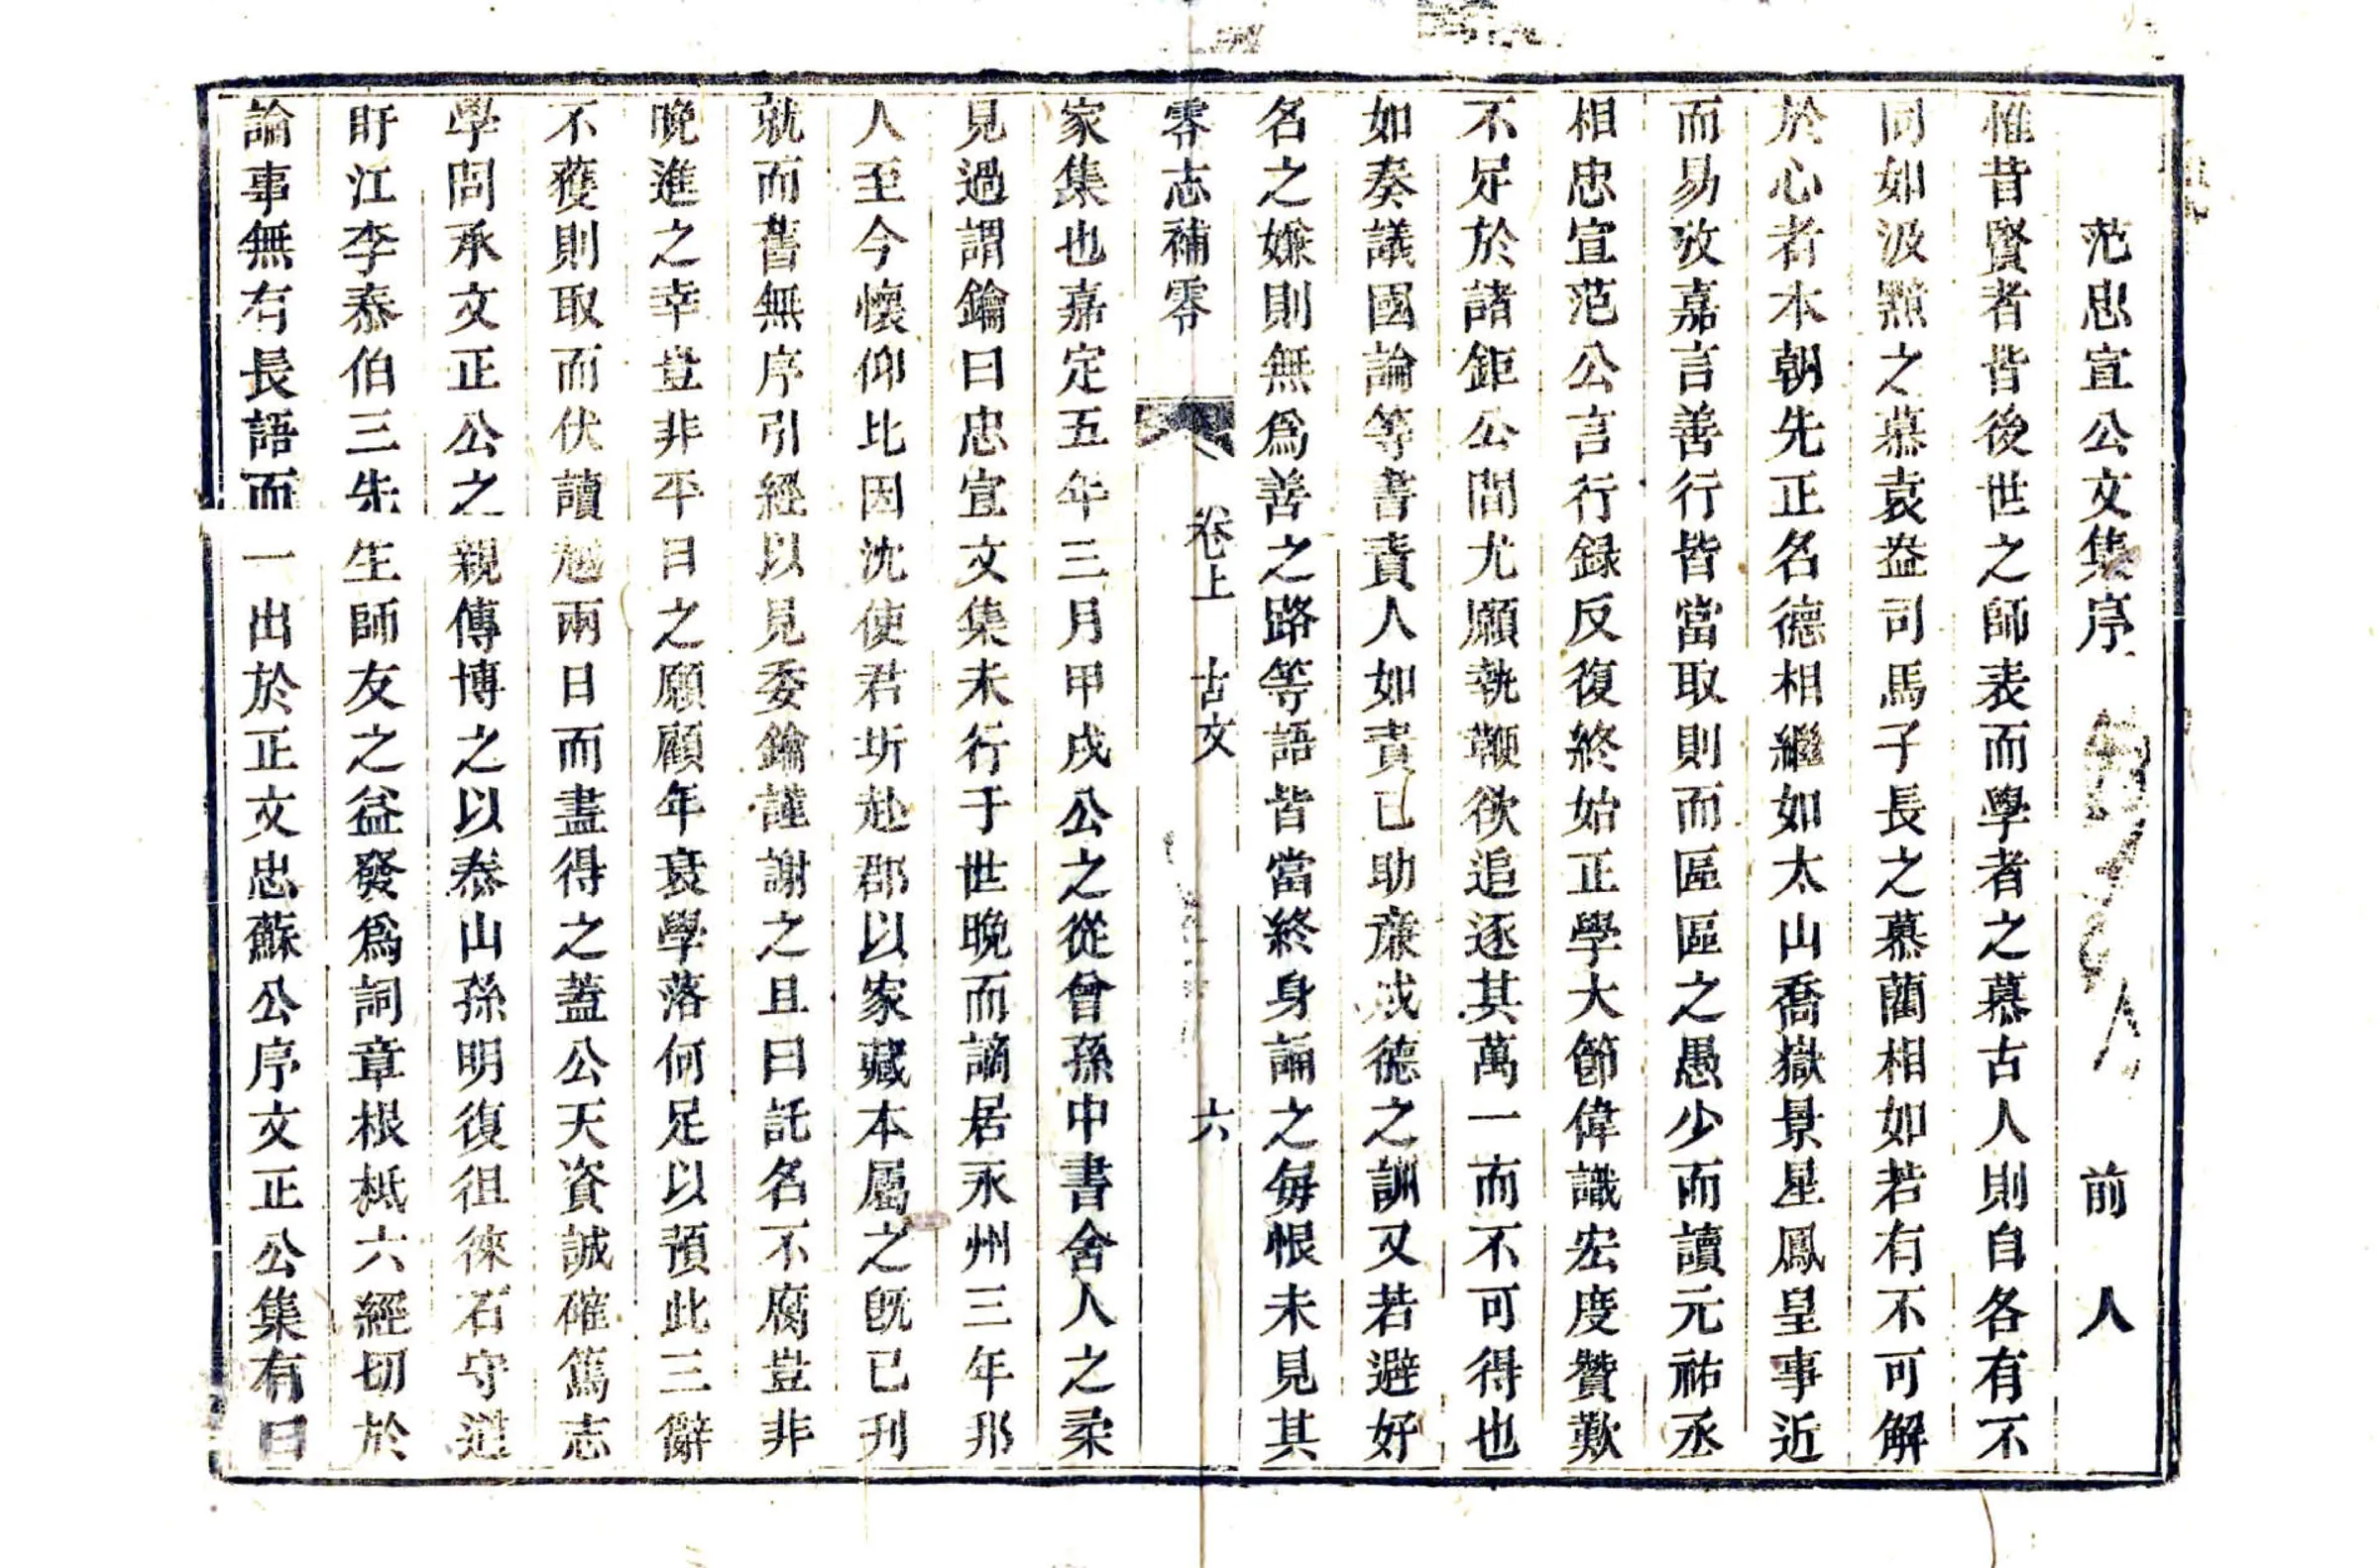 范忠宣公文集序 前人
惟昔賢者皆後世之師表而學者之慕古人則自各有不
同如汲黯之慕袁盎司馬子長之慕藺相如若有不可解
於心者本朝先正名德相繼如太山喬嶽景星鳳皇事近
而易攷嘉言善行皆當取則而區區之愚少而讀元祐丞
相忠宣范公言行録反復終始正學大節偉識宏度贊歎
不足於諸鉅公間尤願執鞭欲追逐其萬一而不可得也
如奏議國論等書責人如責己助亷成德之訓又若避好
名之嫌則無爲善之路等語皆當終身誦之每恨未見其
零志補零 卷上 古文 六
家集也嘉定五年三月甲戌公之從曾孫中書舍人之柔
見過謂鑰曰忠宣文集未行于世晩而謫居永州三年邦
人至今懷仰比因沈使君圻赴郡以家藏本屬之旣已刋
就而舊無序引經以見委鑰謹謝之且曰託名不腐豈非
晩進之幸豈非平日之願顧年衰學落何足以預此三辭
不獲則取而伏讀越兩日而盡得之蓋公天資誠確篤志
學問承文正公之親傳博之以泰山孫明復徂徠石守道
盱江李泰伯三先生師友之益發爲詞章根柢六經切於
論事無冇長語而一出於正文忠蘇公序文正公集有曰